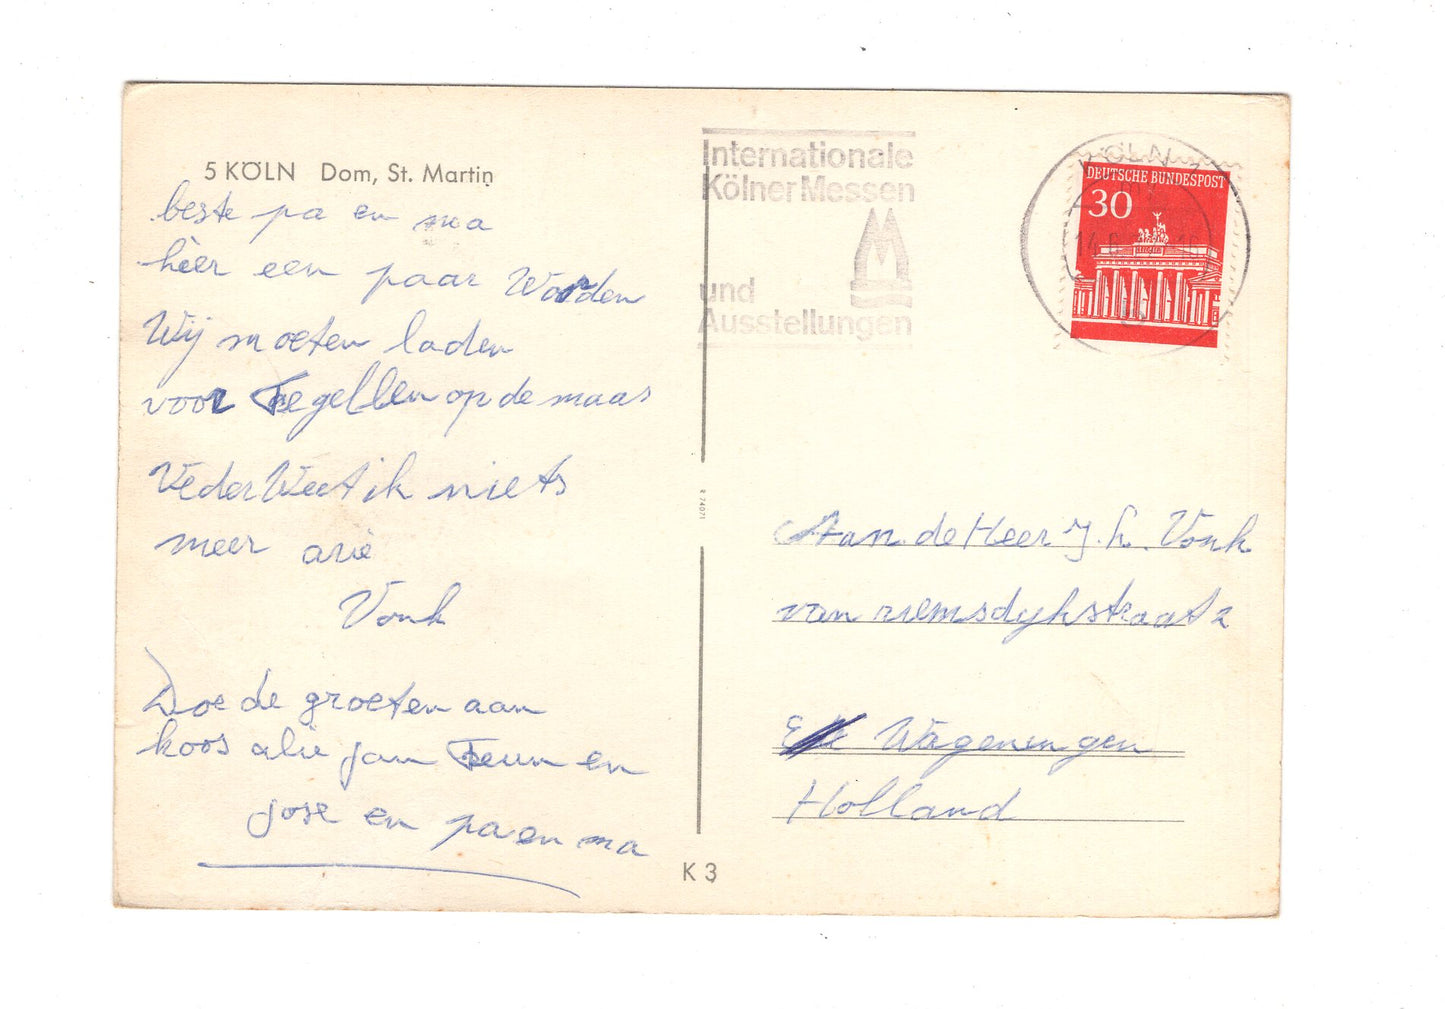 5 KÖLN Dom, St. Martin
beste pa en ma
hier een paar Worden
Wij moeten laden
voor Tegellen op de maas
Veder Weet ik niets
meer arie
Vonk
Doe de groeten aan
koos alie jan Teun en
jose en pa en ma
Internationale
Kölner Messen
und
Ausstellungen
KÖLN
DEUTSCHE BUNDESPOST
30
R 74071
Aan de Heer J. h. Vonk
van riemsdijkstraat 2
Wageningen
Holland
K 3